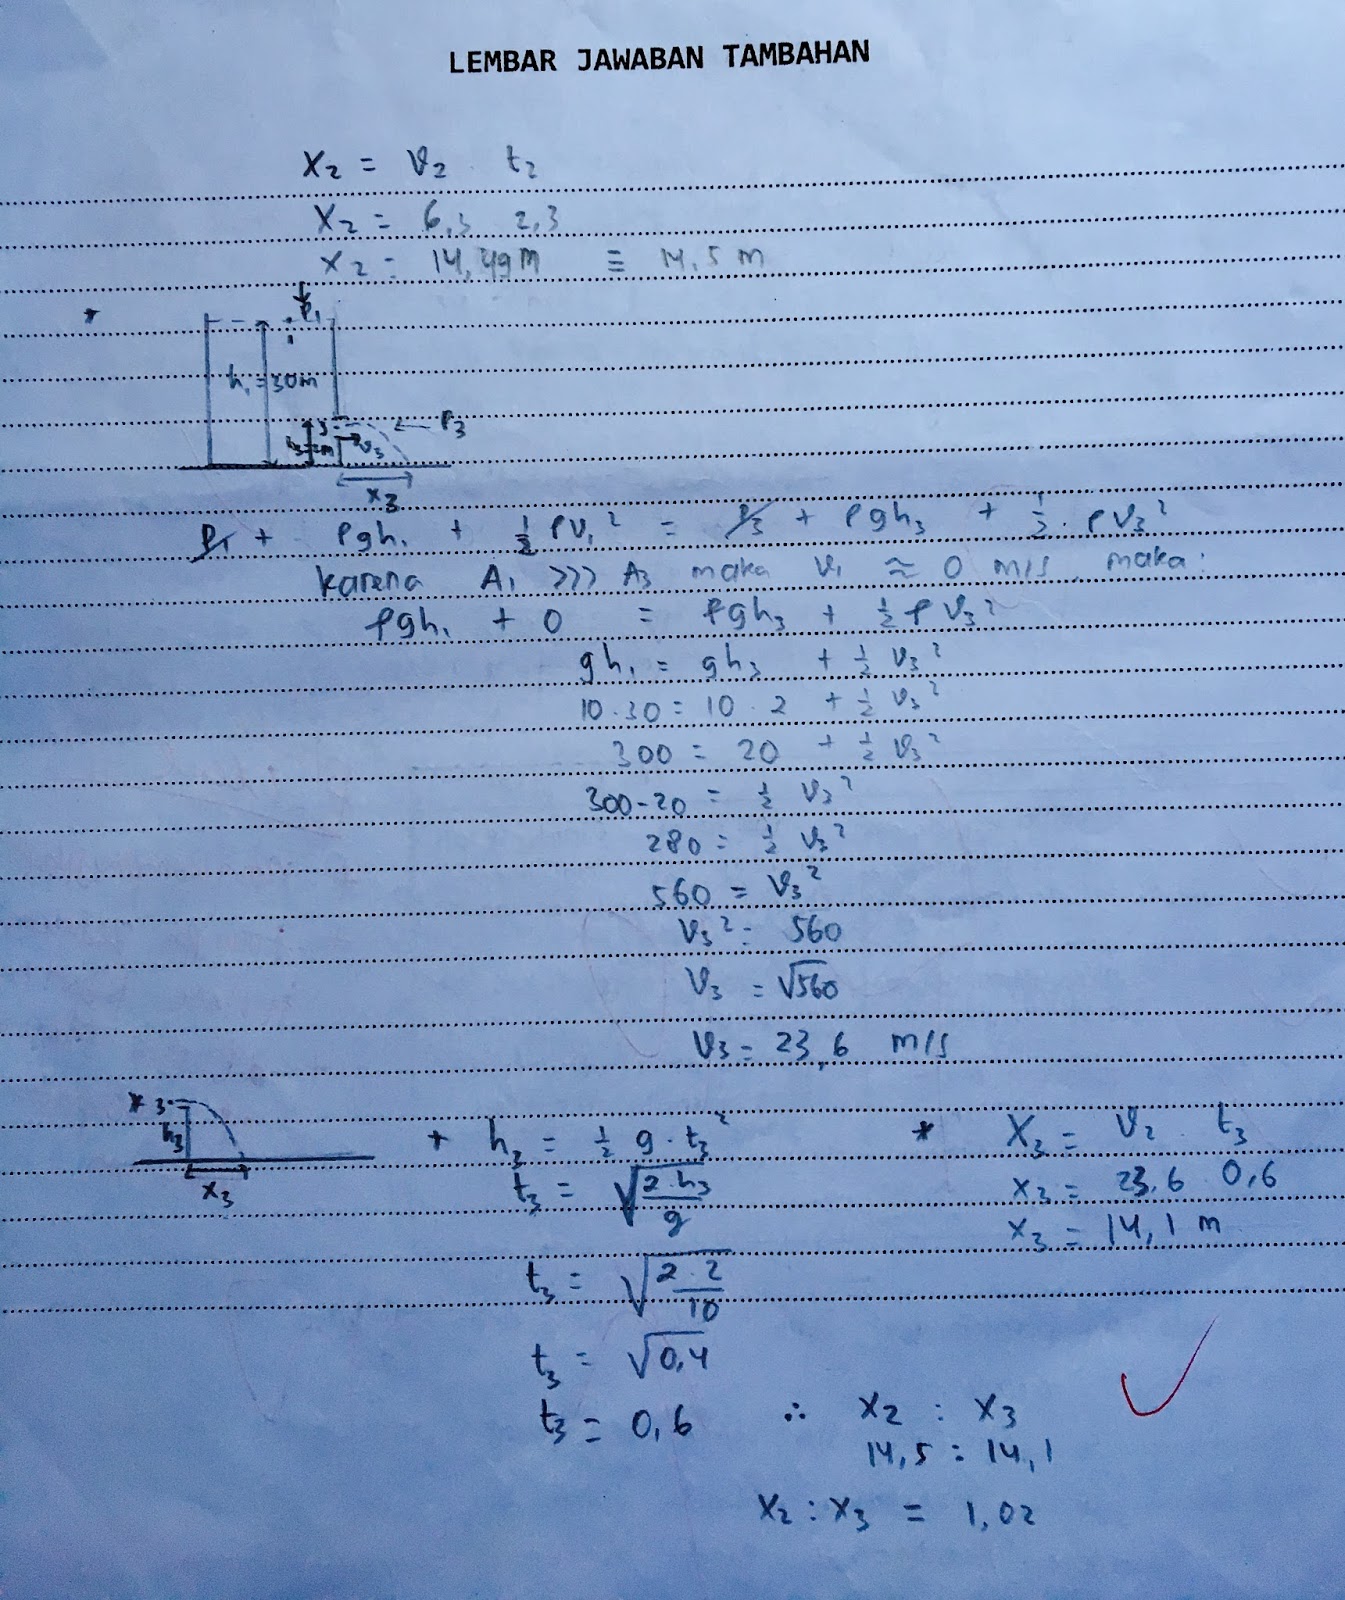 LEMBAR JAWABAN TAMBAHAN
x₂ = v₂ . t₂
x₂ = 6,3 2,3
x₂ = 14,49 m ≡ 14,5 m
* P₁
1
h₁ = 30m
3 P₃
v₃
x₃
P₁ + ρgh₁ + ½ ρv₁² = P₃ + ρgh₃ + ½ . ρv₃²
karena A₁ >>> A₃ maka v₁ ≈ 0 m/s, maka :
ρgh₁ + 0 = ρgh₃ + ½ ρv₃²
gh₁ = gh₃ + ½ v₃²
10 . 30 = 10 . 2 + ½ v₃²
300 = 20 + ½ v₃²
300 - 20 = ½ v₃²
280 = ½ v₃²
560 = v₃²
v₃² = 560
v₃ = √560
v₃ = 23,6 m/s
* 3
h₃
x₃
* h₃ = ½ g . t₃²
t₃ = √(2 . h₃/g)
t₃ = √(2 . 2/10)
t₃ = √0,4
t₃ = 0,6
* x₃ = v₂ . t₃
x₃ = 23,6 0,6
x₃ = 14,1 m
∴ x₂ : x₃
14,5 : 14,1
x₂ : x₃ = 1,02